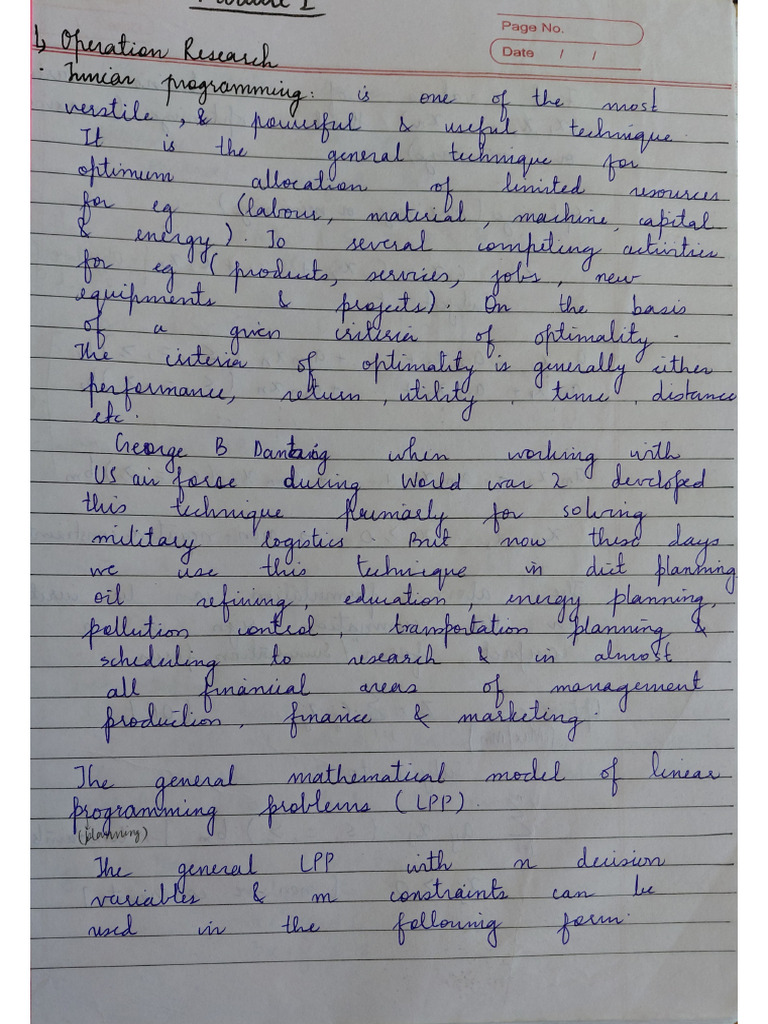 Module I
Page No.
Date / /
Operation Research
Liniar programming: is one of the most
verstile, & powerful & useful technique.
It is the general technique for
optimum allocation of limited resources
for eg (labour, material, machine, capital
& energy). To several competing activities
for eg (products, services, jobs, new
equipments & projects). On the basis
of a given criteria of optimality.
The criteria of optimality is generally either
performance, return, utility, time, distance
etc.
George B Dantzig when working with
US air force during World war 2 developed
this technique primarly for solving
military logistics But now these days
we use this technique in diet planning
oil refining, education, energy planning,
pollution control, transportation planning &
scheduling to research & in almost
all financial areas of management
production, finance & marketing.
The general mathematical model of linear
programming problems (LPP).
(planning)
The general LPP with n decision
variables & m constraints can be
used in the following form.